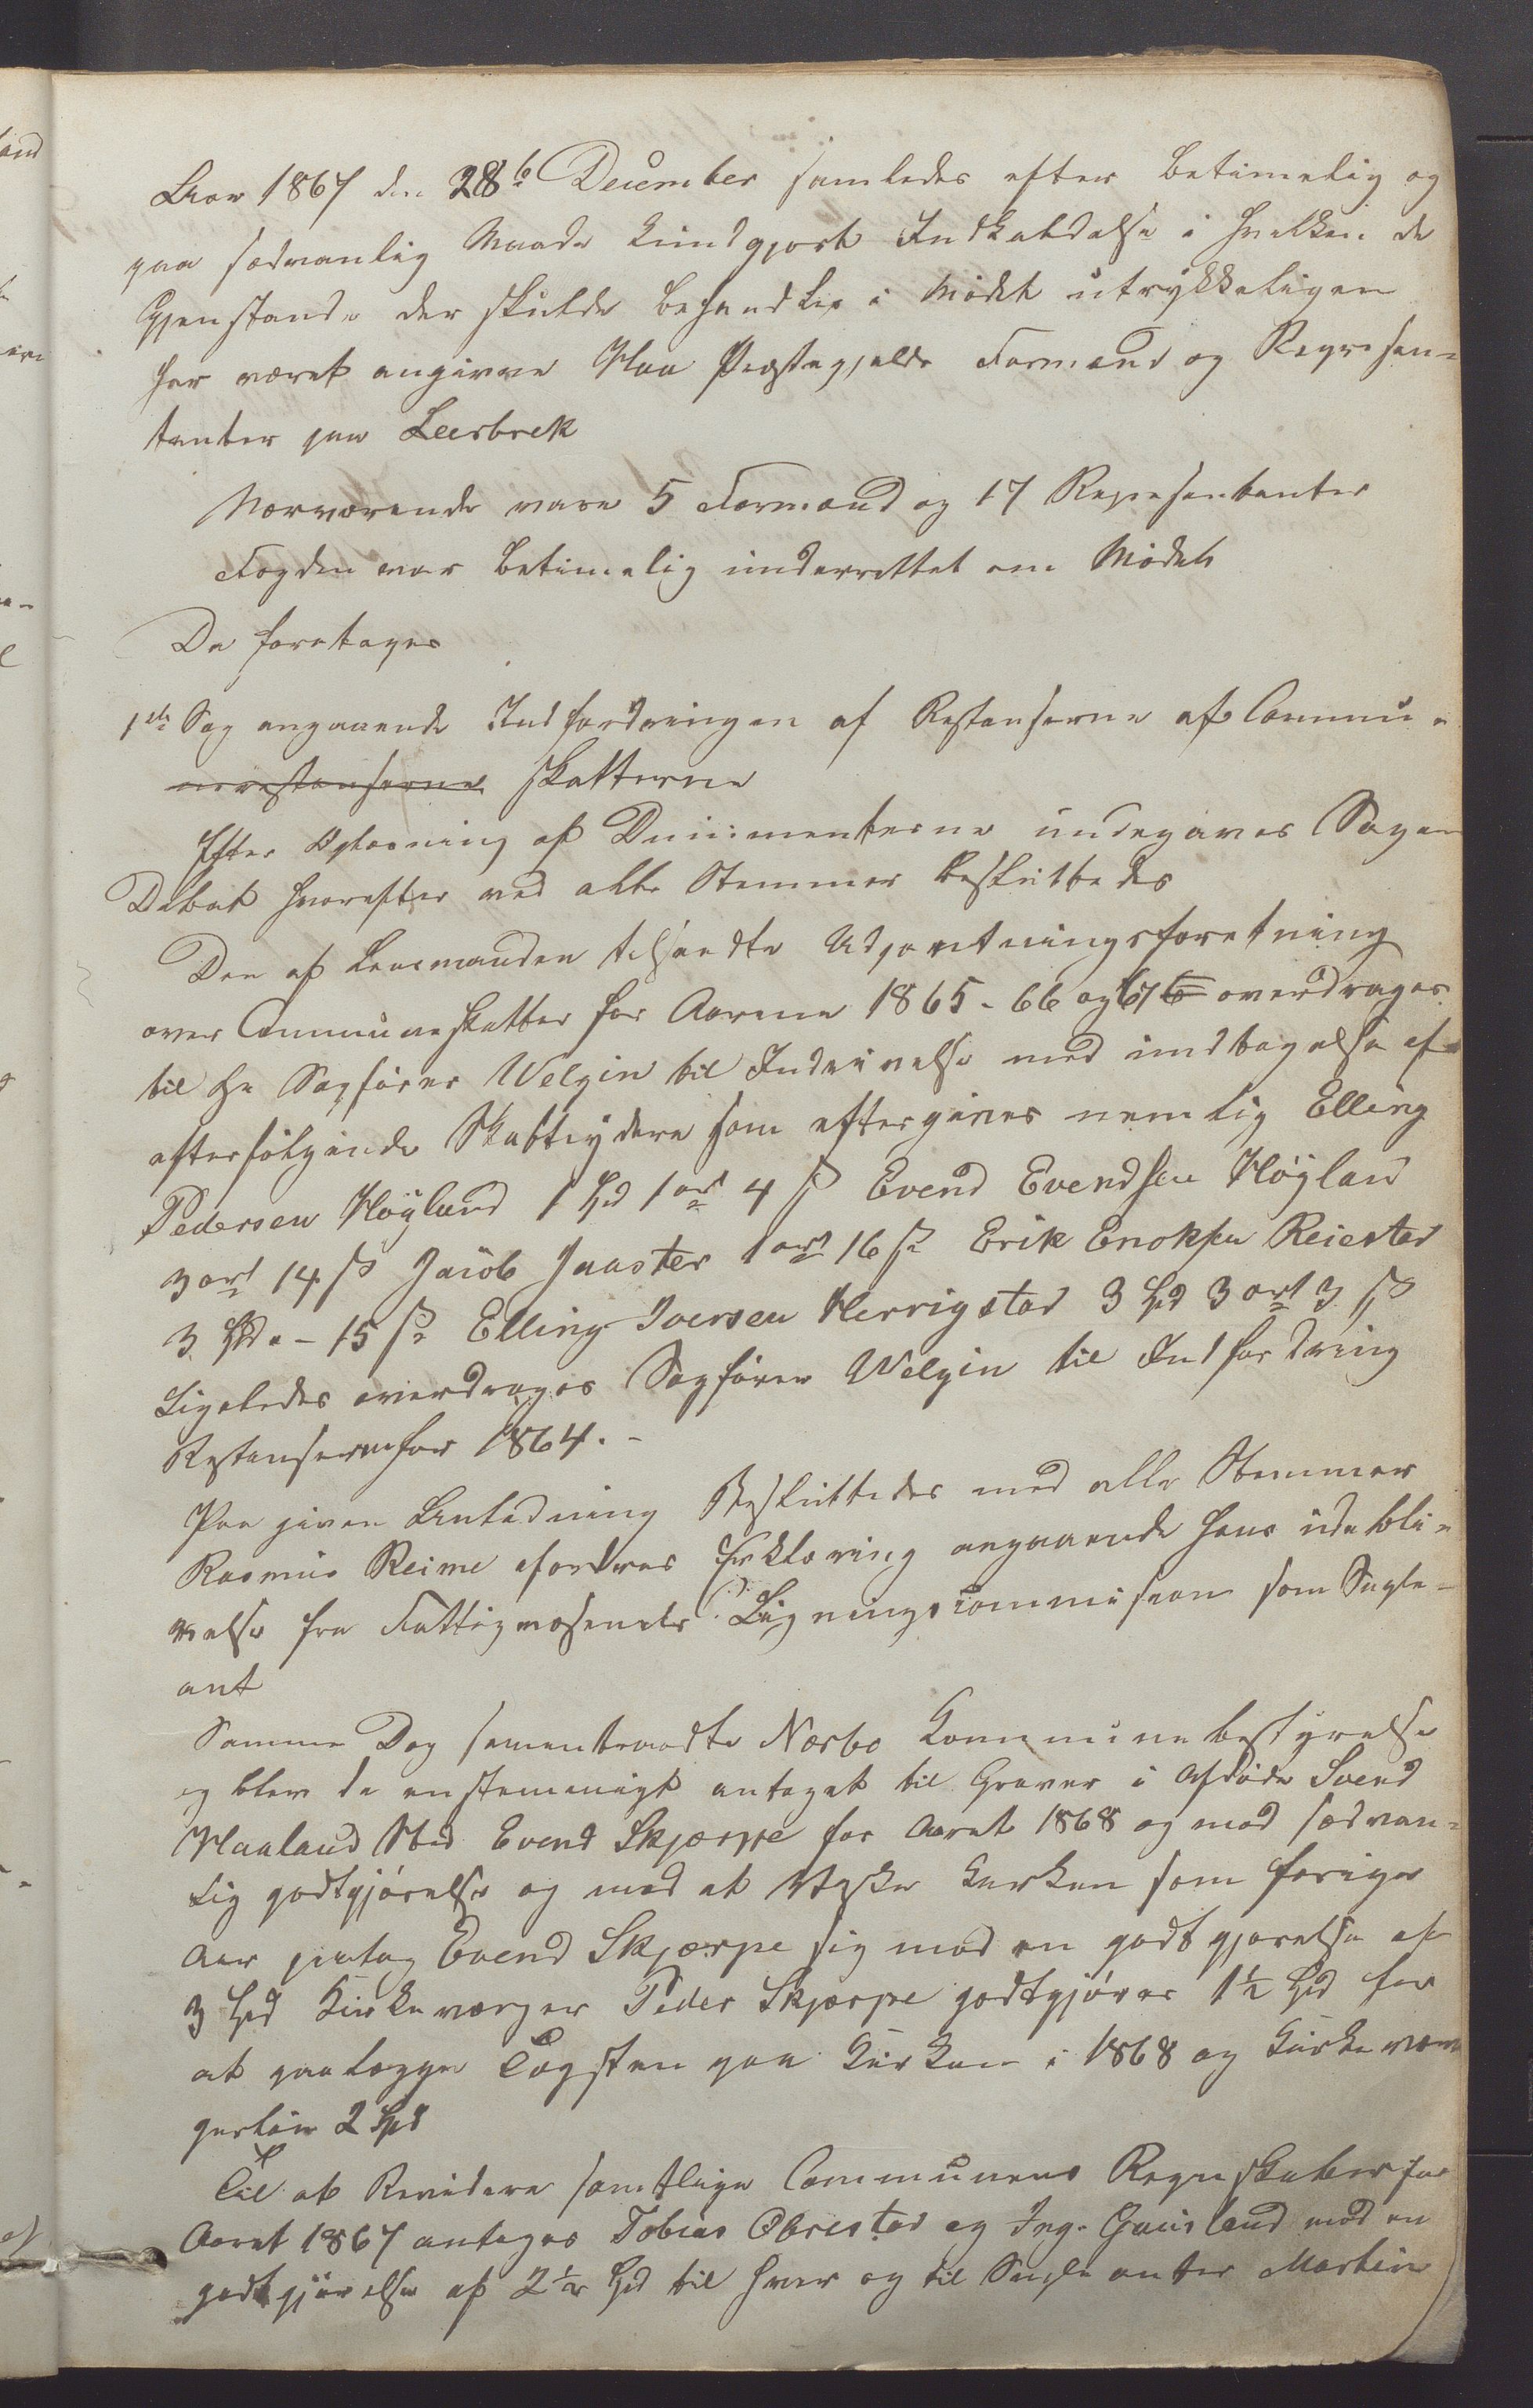 Aar 1867 den 28de December samledes efter betimelig og
paa sædvanlig Maade kundgjort Indkaldelse i hvilken de
Gjenstande der skulde behandles i Mødet utrykkeligen
har været angivne Haa Præstegjelds Formænd og Represen-
tanter paa Leerbrek
Nærværende vare 5 Formænd og 17 Represententer
Fogden var betimelig underrettet om Mødet
Da foretages
1ste Sag angaaende Indfordringen af Restanserne af Commu-
nerestanserne Skatterne
Efter Oplæsning af Ducumenterne undegaves Sagen
Debat hvorefter med alle Stemmer besluttedes
Den af Lensmanden tilsendte Udpantningsforetning
over Communeskatter for Aarene 1865-66 og 67 overdrages
til Hr Sagfører Welgin til Inddrivelse med undtagelse af
efterfølgende Skatteydere som eftergives nemlig Elling
Pedersen Høyland 1 Spd 1 ort 4 s Evend Evendsen Høylan
3 ort 14 s Jacob Jaaster 1 ort 16 s Erik Enoksen Reiestad
3 Spd - 15 s Elling Iversen Herrigstad 3 Spd 3 ort 3 s
Ligeledes overdrages Sagfører Welgin til Indfordring
Restanserne for 1864.-
Paa given Anledning Besluttedes med alle Stemmer
Rasmus Reime afordres Erklæring angaaende hans udebli-
velse fra Fattigvæsenets Ligningscommission som Suple-
ant
Samme Dag sammentraadte Nærbo Kommunebestyrelse
og blev da enstemmigt antaget til Graver i Afdøde Svend
Haaland Sted Evend Skjærpe for Aaret 1868 og mod sædvan-
lig godtgjørelse og med at Vaske Kirken som forige
Aar patog Evend Skjærpe sig mod en godtgjørelse af
3 Spd Kirkeværger Peder Skjærpe godtgjøres 1½ Spd for
at paalægge Tagsten paa Kirken i 1868 og Kirkevær-
gerløn 2 Spd
Til at Revidere samtlige Communens Regnskaber for
Aaret 1867 antages Tobias Obrestad og Ing. Gausland mod en
godtgjørelse af 2½ Spd til hver og til Suplianter Martin